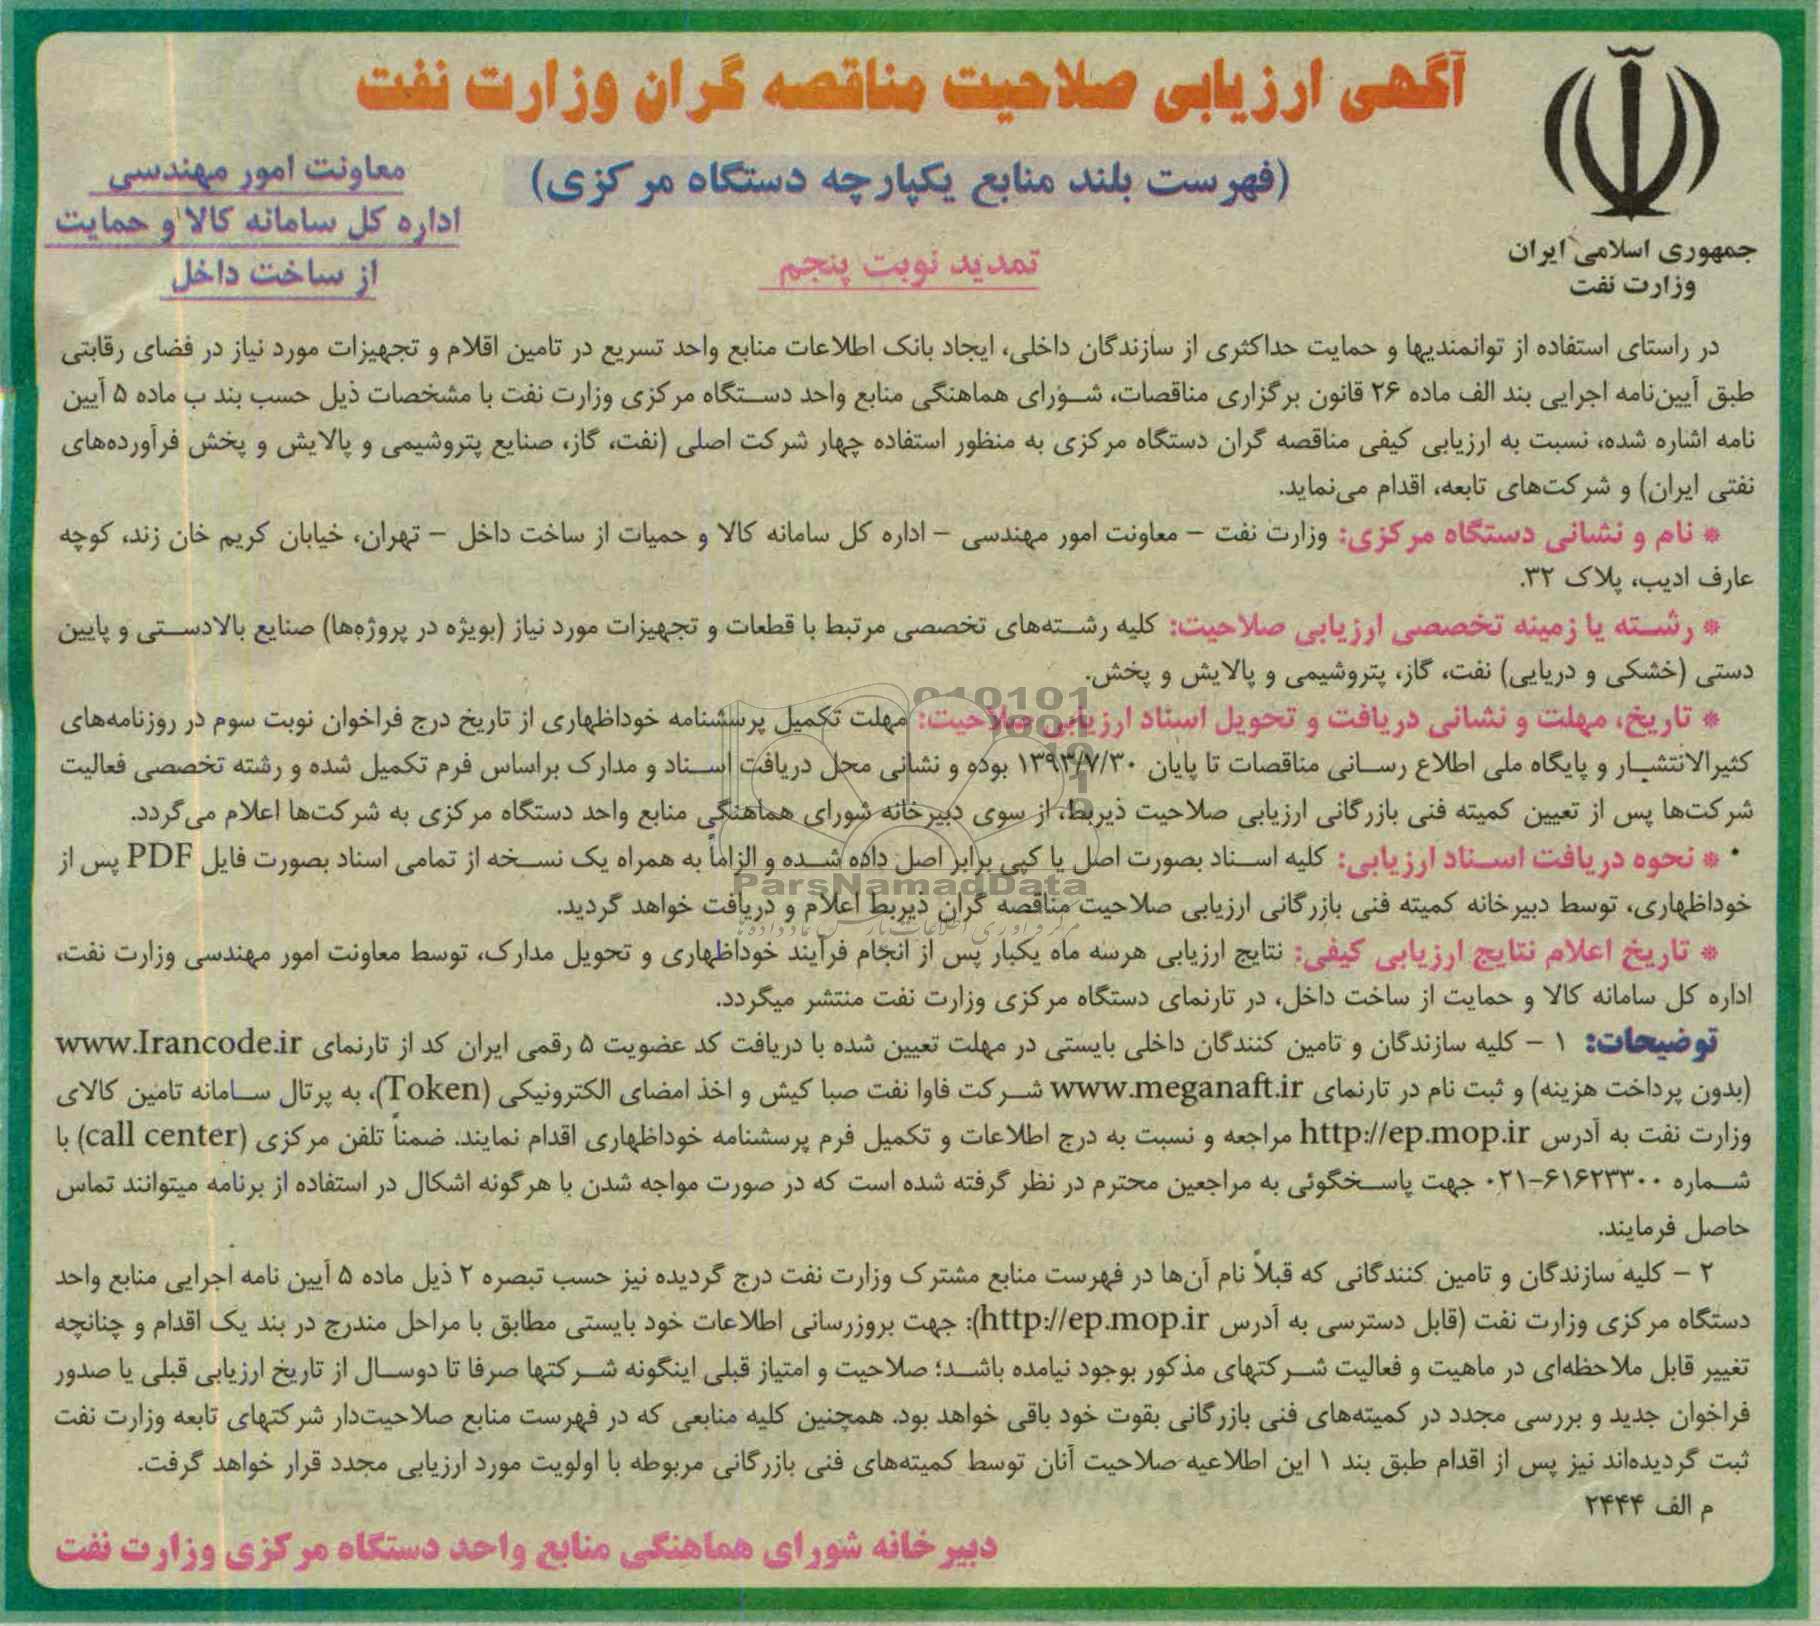 آگهی ارزیابی صلاحیت مناقصه گران وزارت نفت
(فهرست بلند منابع یکپارچه دستگاه مرکزی)
تمدید نوبت پنجم
جمهوری اسلامی ایران
وزارت نفت
معاونت امور مهندسی
اداره کل سامانه کالا و حمایت
از ساخت داخل
در راستای استفاده از توانمندیها و حمایت حداکثری از سازندگان داخلی، ایجاد بانک اطلاعات منابع واحد تسریع در تامین اقلام و تجهیزات مورد نیاز در فضای رقابتی
طبق آیین‌نامه اجرایی بند الف ماده ۲۶ قانون برگزاری مناقصات، شورای هماهنگی منابع واحد دستگاه مرکزی وزارت نفت با مشخصات ذیل حسب بند ب ماده ۵ آیین
نامه اشاره شده، نسبت به ارزیابی کیفی مناقصه گران دستگاه مرکزی به منظور استفاده چهار شرکت اصلی (نفت، گاز، صنایع پتروشیمی و پالایش و پخش فرآورده‌های
نفتی ایران) و شرکت‌های تابعه، اقدام می‌نماید.
* نام و نشانی دستگاه مرکزی: وزارت نفت – معاونت امور مهندسی – اداره کل سامانه کالا و حمیات از ساخت داخل – تهران، خیابان کریم خان زند، کوچه
عارف ادیب، پلاک ۳۲.
* رشته یا زمینه تخصصی ارزیابی صلاحیت: کلیه رشته‌های تخصصی مرتبط با قطعات و تجهیزات مورد نیاز (بویژه در پروژه‌ها) صنایع بالادستی و پایین
دستی (خشکی و دریایی) نفت، گاز، پتروشیمی و پالایش و پخش.
* تاریخ، مهلت و نشانی دریافت و تحویل اسناد ارزیابی صلاحیت: مهلت تکمیل پرسشنامه خوداظهاری از تاریخ درج فراخوان نوبت سوم در روزنامه‌های
کثیرالانتشار و پایگاه ملی اطلاع رسانی مناقصات تا پایان ۱۳۹۳/۷/۳۰ بوده و نشانی محل دریافت اسناد و مدارک براساس فرم تکمیل شده و رشته تخصصی فعالیت
شرکت‌ها پس از تعیین کمیته فنی بازرگانی ارزیابی صلاحیت ذیربط، از سوی دبیرخانه شورای هماهنگی منابع واحد دستگاه مرکزی به شرکت‌ها اعلام می‌گردد.
* نحوه دریافت اسناد ارزیابی: کلیه اسناد بصورت اصل یا کپی برابر اصل داده شده و الزاماً به همراه یک نسخه از تمامی اسناد بصورت فایل PDF پس از
خوداظهاری، توسط دبیرخانه کمیته فنی بازرگانی ارزیابی صلاحیت مناقصه گران ذیربط اعلام و دریافت خواهد گردید.
* تاریخ اعلام نتایج ارزیابی کیفی: نتایج ارزیابی هرسه ماه یکبار پس از انجام فرآیند خوداظهاری و تحویل مدارک، توسط معاونت امور مهندسی وزارت نفت،
اداره کل سامانه کالا و حمایت از ساخت داخل، در تارنمای دستگاه مرکزی وزارت نفت منتشر میگردد.
توضیحات: ۱ – کلیه سازندگان و تامین کنندگان داخلی بایستی در مهلت تعیین شده با دریافت کد عضویت ۵ رقمی ایران کد از تارنمای www.Irancode.ir
(بدون پرداخت هزینه) و ثبت نام در تارنمای www.meganaft.ir شرکت فاوا نفت صبا کیش و اخذ امضای الکترونیکی (Token)، به پرتال سامانه تامین کالای
وزارت نفت به آدرس http://ep.mop.ir مراجعه و نسبت به درج اطلاعات و تکمیل فرم پرسشنامه خوداظهاری اقدام نمایند. ضمناً تلفن مرکزی (call center) با
شماره ۶۱۶۲۳۳۰۰-۰۲۱ جهت پاسخگوئی به مراجعین محترم در نظر گرفته شده است که در صورت مواجه شدن با هرگونه اشکال در استفاده از برنامه میتوانند تماس
حاصل فرمایند.
۲ – کلیه سازندگان و تامین کنندگانی که قبلاً نام آن‌ها در فهرست منابع مشترک وزارت نفت درج گردیده نیز حسب تبصره ۲ ذیل ماده ۵ آیین نامه اجرایی منابع واحد
دستگاه مرکزی وزارت نفت (قابل دسترسی به آدرس http://ep.mop.ir): جهت بروزرسانی اطلاعات خود بایستی مطابق با مراحل مندرج در بند یک اقدام و چنانچه
تغییر قابل ملاحظه‌ای در ماهیت و فعالیت شرکتهای مذکور بوجود نیامده باشد؛ صلاحیت و امتیاز قبلی اینگونه شرکتها صرفا تا دوسال از تاریخ ارزیابی قبلی یا صدور
فراخوان جدید و بررسی مجدد در کمیته‌های فنی بازرگانی بقوت خود باقی خواهد بود. همچنین کلیه منابعی که در فهرست منابع صلاحیت‌دار شرکتهای تابعه وزارت نفت
ثبت گردیده‌اند نیز پس از اقدام طبق بند ۱ این اطلاعیه صلاحیت آنان توسط کمیته‌های فنی بازرگانی مربوطه با اولویت مورد ارزیابی مجدد قرار خواهد گرفت.
م الف ۲۴۴۴
دبیرخانه شورای هماهنگی منابع واحد دستگاه مرکزی وزارت نفت
ParsNamadData